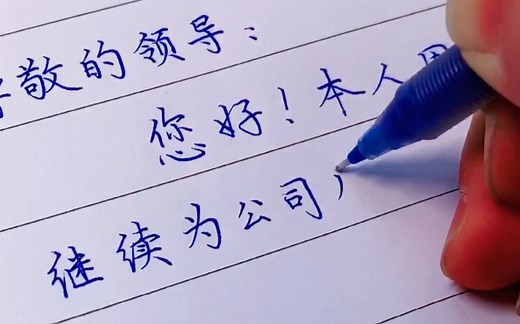 敬的领导：
您好！本人
继续为公司